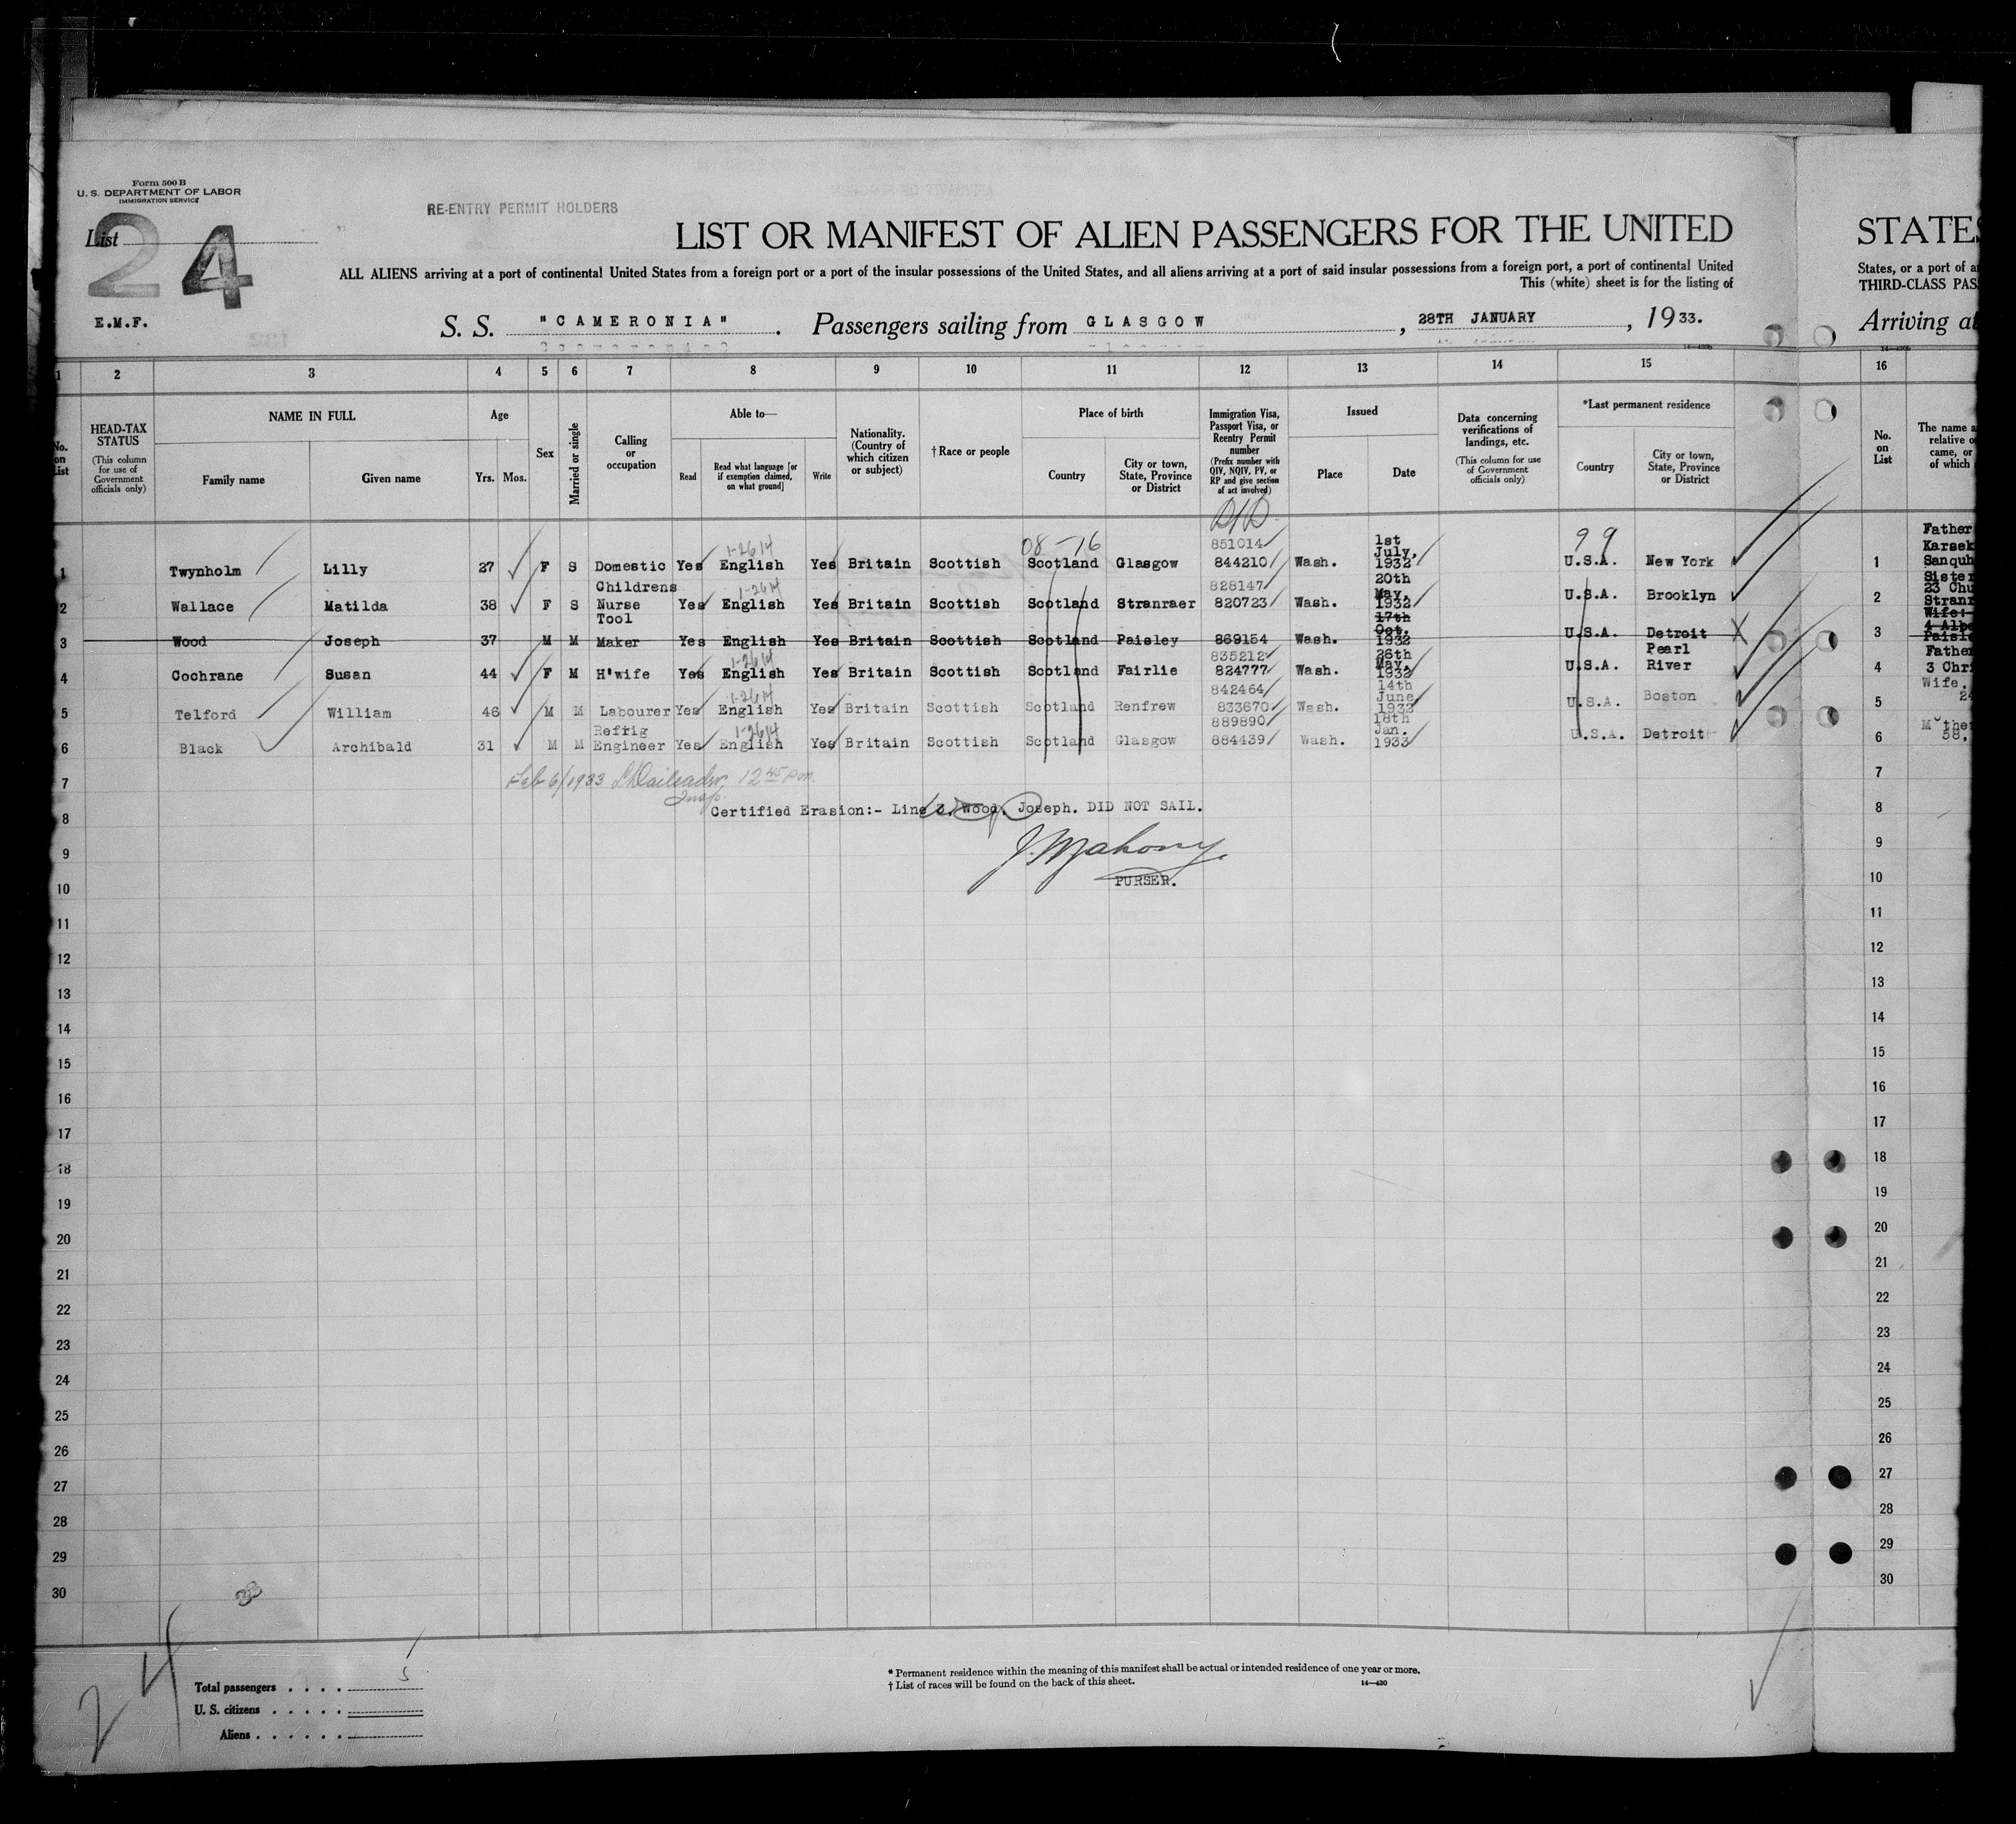 Form 500 B
U. S. DEPARTMENT OF LABOR
IMMIGRATION SERVICE
List
24
E.M.F.
RE-ENTRY PERMIT HOLDERS
LIST OR MANIFEST OF ALIEN PASSENGERS FOR THE UNITED
ALL ALIENS arriving at a port of continental United States from a foreign port or a port of the insular possessions of the United States, and all aliens arriving at a port of said insular possessions from a foreign port, a port of continental United
This (white) sheet is for the listing of
S. S. "CAMERONIA". Passengers sailing from GLASGOW, 28TH JANUARY, 1933.
STATES
States, or a port of
THIRD-CLASS PAS
Arriving at
1 2 3 4 5 6 7 8 9 10 11 12 13 14 15 16
No. on List
HEAD-TAX STATUS
(This column for use of Government officials only)
NAME IN FULL
Family name Given name
Age
Yrs. Mos.
Sex
Married or single
Calling or occupation
Able to—
Read
Read what language [or if exemption claimed, on what ground]
Write
Nationality. (Country of which citizen or subject)
† Race or people
Place of birth
Country
City or town, State, Province or District
Immigration Visa, Passport Visa, or Reentry Permit number
(Prefix number with QIV, NQIV, PV, or RP and give section of act involved)
Issued
Place Date
Data concerning verifications of landings, etc.
(This column for use of Government officials only)
*Last permanent residence
Country
City or town, State, Province or District
No. on List
The name a
relative o
came, or
of which
08-16
99
1 Twynholm Lilly 27 F S Domestic Yes English 1-2614 Yes Britain Scottish Scotland Glasgow 851014 844210 Wash. 1st July, 1932 U.S.A. New York 1 Father Karsek Sanquh
2 Wallace Matilda 38 F S Childrens Nurse Yes English 1-2614 Yes Britain Scottish Scotland Stranraer 828147 820723 Wash. 20th May, 1932 U.S.A. Brooklyn 2 Sister 23 Chu Stranr
3 Wood Joseph 37 M M Tool Maker Yes English Yes Britain Scottish Scotland Paisley 869154 Wash. 17th Oct. 1932 U.S.A. Detroit X 3 Wife:- 4 Albe Paisle
4 Cochrane Susan 44 F M H'wife Yes English 1-2614 Yes Britain Scottish Scotland Fairlie 835212 824777 Wash. 26th May, 1932 U.S.A. Pearl River 4 Father 3 Chri
5 Telford William 46 M M Labourer Yes English 1-2614 Yes Britain Scottish Scotland Renfrew 842464 833670 Wash. 14th June 1932 U.S.A. Boston 5 Wife, 24
6 Black Archibald 31 M M Refrig Engineer Yes English 1-2614 Yes Britain Scottish Scotland Glasgow 889890 884439 Wash. 18th Jan. 1933 U.S.A. Detroit 6 Mother 58,
7 Feb 6/1933 12 45 pm. 7
Insp.
8 Certified Erasion:- Line 3. Wood. Joseph. DID NOT SAIL. 8
9 J. Mahony 9
10 PURSER. 10
11 11
12 12
13 13
14 14
15 15
16 16
17 17
18 18
19 19
20 20
21 21
22 22
23 23
24 24
25 25
26 26
27 27
28 28
29 29
30 30
24
Total passengers . . . . 5
U. S. citizens . . . . .
Aliens . . . . . .
* Permanent residence within the meaning of this manifest shall be actual or intended residence of one year or more.
† List of races will be found on the back of this sheet.
14—430